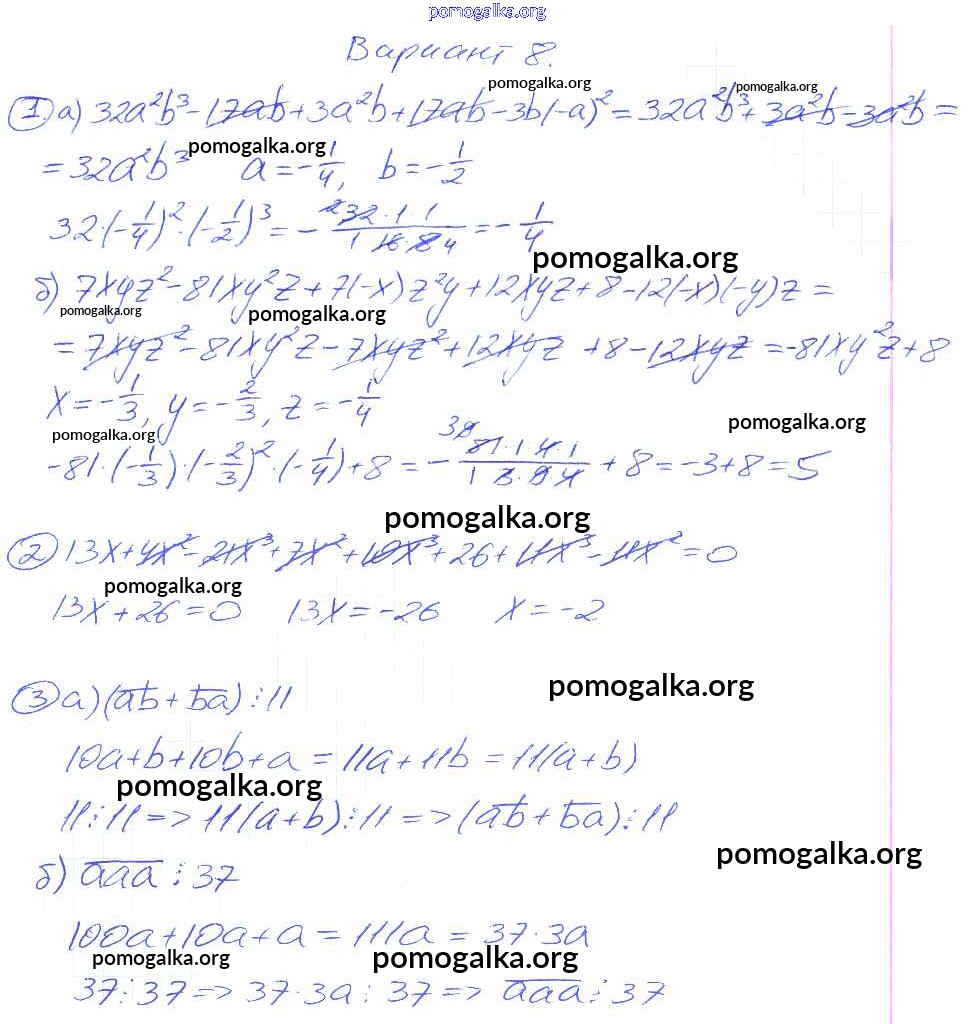 pomogalka.org
Вариант 8.
pomogalka.org pomogalka.org
① а) 32a²b³ - 17ab + 3a²b + 17ab - 3b(-a)² = 32a²b³ + 3a²b - 3a²b =
= 32a²b³ a = -1/4, b = -1/2
pomogalka.org
32(-1/4)² · (-1/2)³ = - 32·1·1 / 16·8 = -1/4
pomogalka.org
б) 7xyz² - 81xy²z + 7(-x)z²y + 12xyz + 8 - 12(-x)(-y)z =
pomogalka.org pomogalka.org
= 7xyz² - 81xy²z - 7xyz² + 12xyz + 8 - 12xyz = -81xy²z + 8
x = -1/3, y = -2/3, z = -1/4
pomogalka.org pomogalka.org
-81·(-1/3)·(-2/3)²·(-1/4) + 8 = - 81·1·4·1 / 3·9·4 + 8 = -3 + 8 = 5
pomogalka.org
② 13x + 4x² - 21x³ + 7x² + 10x³ + 26 + 11x³ - 11x² = 0
pomogalka.org
13x + 26 = 0 13x = -26 x = -2
pomogalka.org
③ а) (a̅b̅ + b̅a̅) ⋮ 11
10a + b + 10b + a = 11a + 11b = 11(a + b)
pomogalka.org
11 ⋮ 11 => 11(a + b) ⋮ 11 => (a̅b̅ + b̅a̅) ⋮ 11
pomogalka.org
б) a̅a̅a̅ ⋮ 37
100a + 10a + a = 111a = 37·3a
pomogalka.org pomogalka.org
37 ⋮ 37 => 37·3a ⋮ 37 => a̅a̅a̅ ⋮ 37